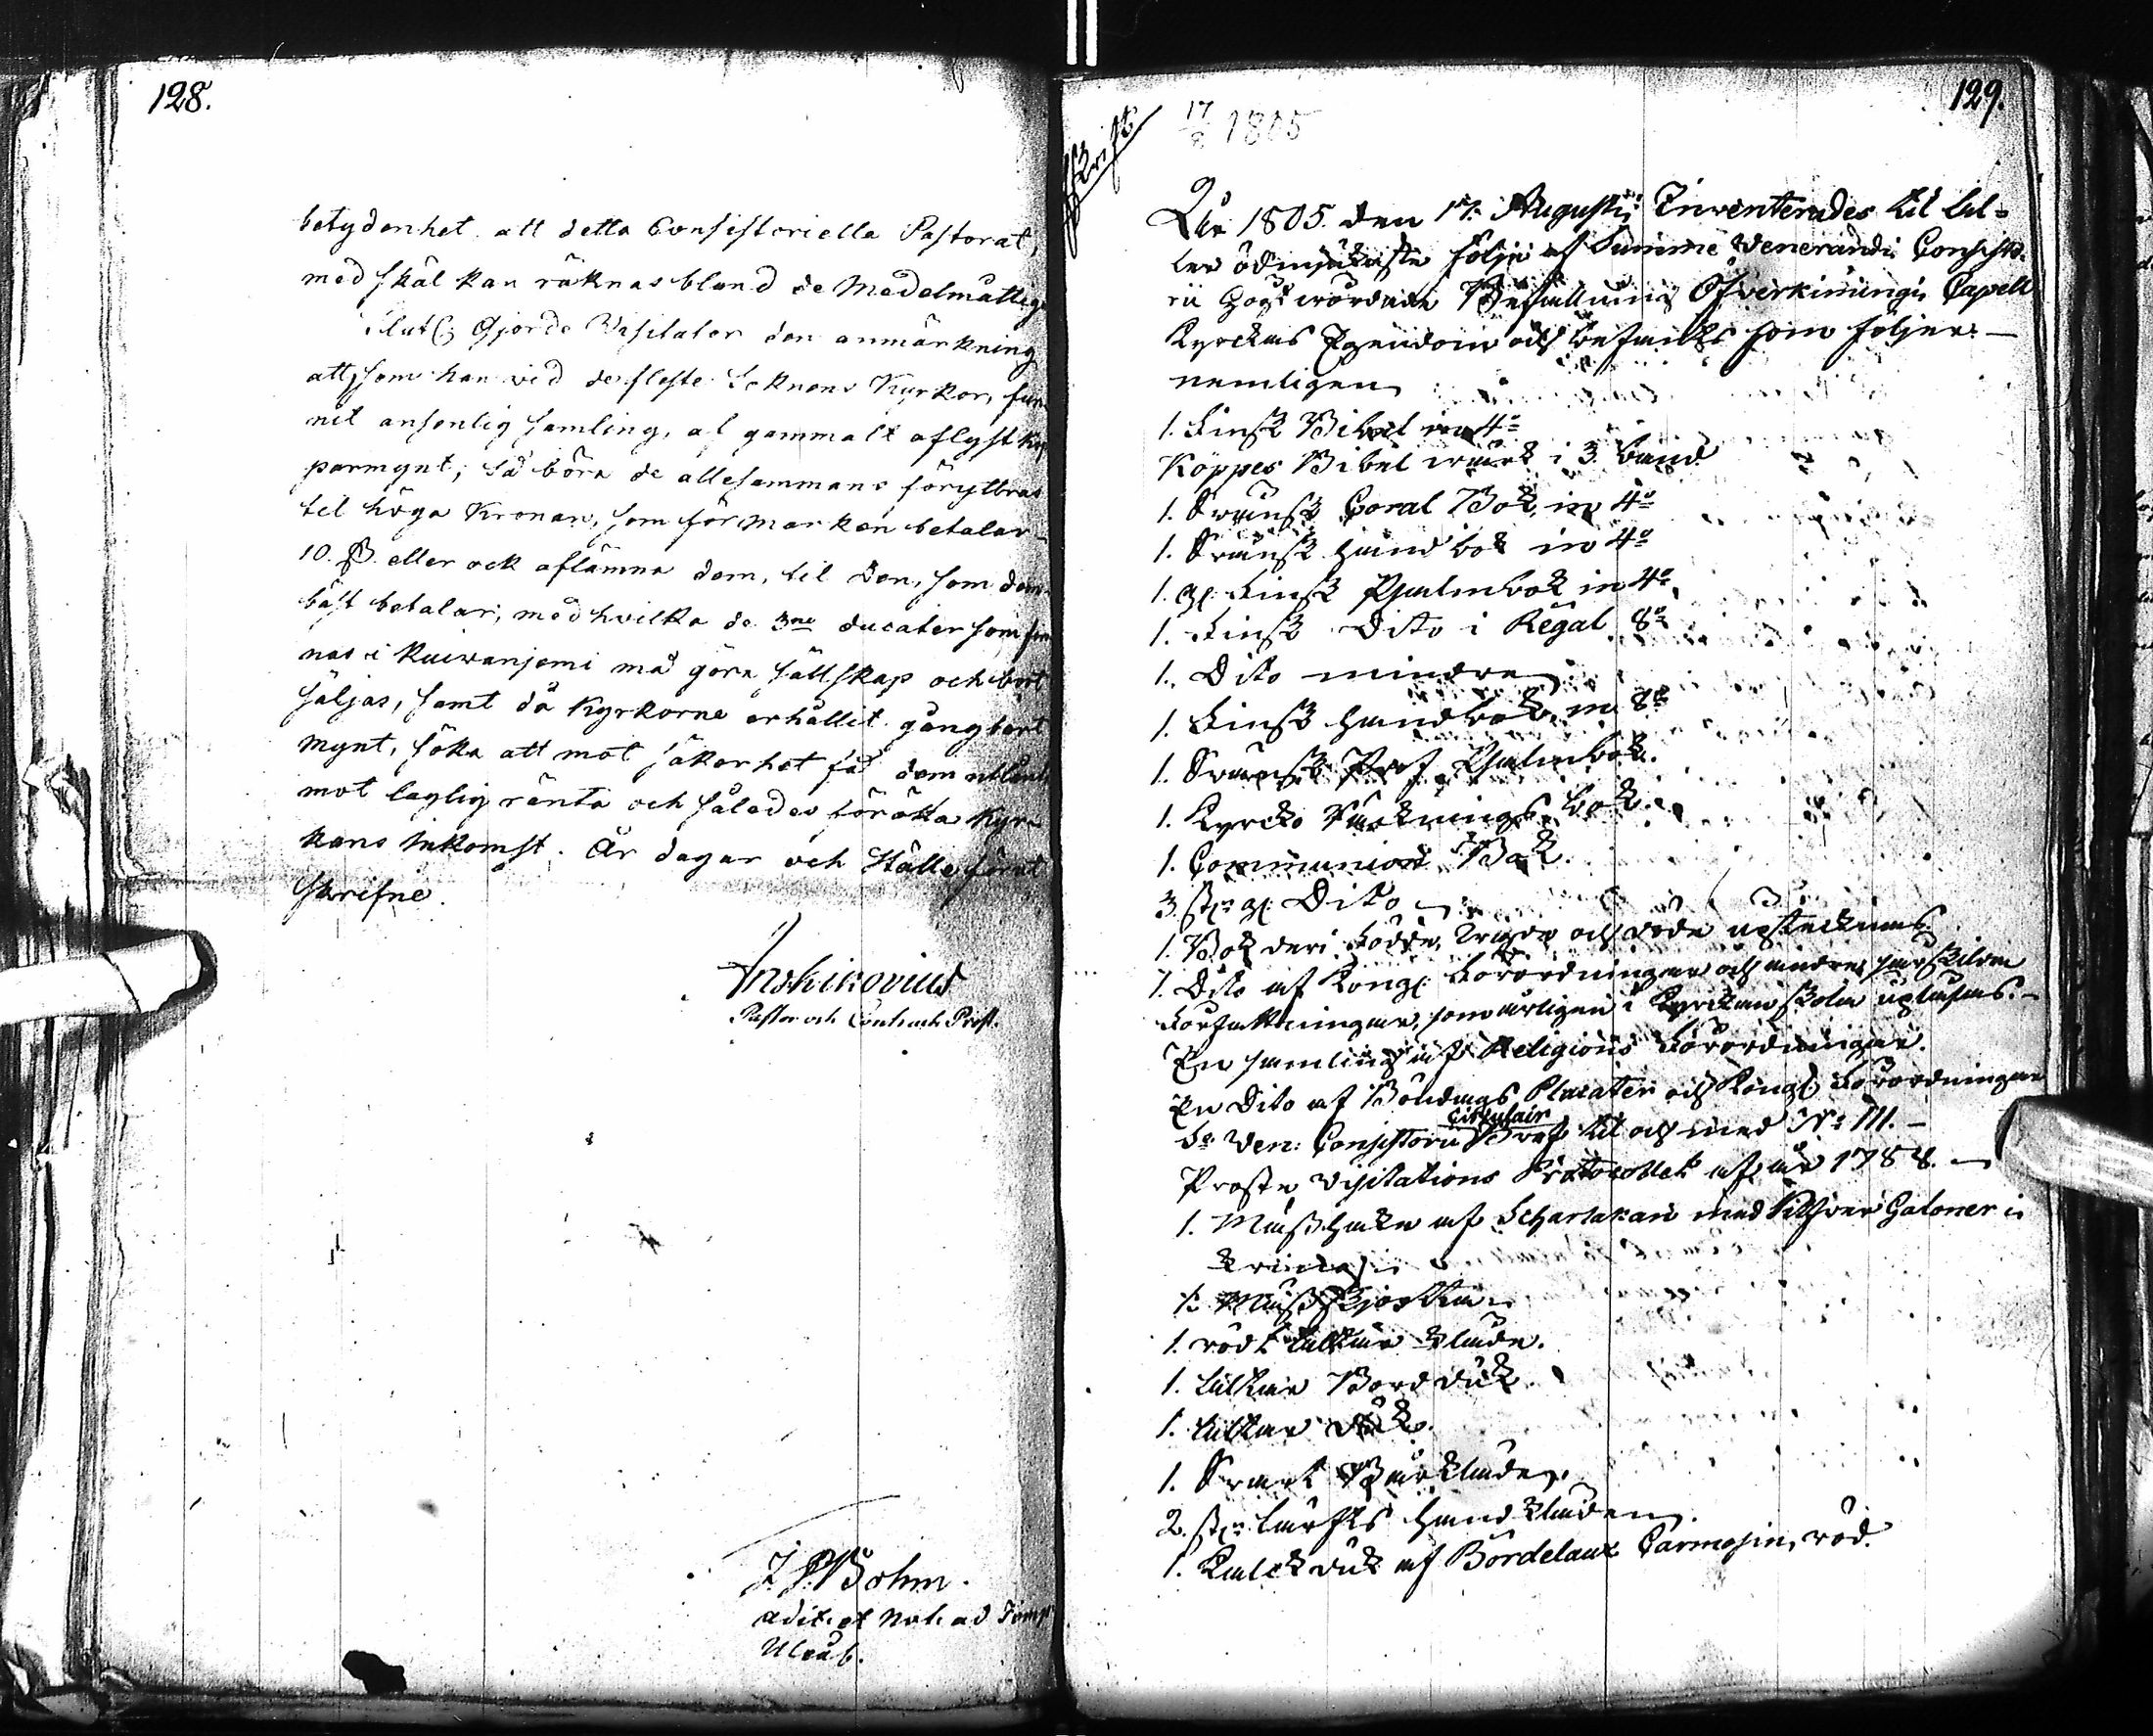 128.
betydenhet att detta Consistoriella Pastorat,
med skäl kan räknas bland de Medelmåttiga
Slutl. Gjorde Visitator den anmärkning
att, som han vid de fleste Soknens Kyrkor, fun-
nit ansenlig samling, af gammalt aflyst kop
parmynt; så böra de allesammans föryttras
til höga Kronan, som för marken betalar
10. ß. eller ock aflämna dem, til den, som dem
bäst betalar; med hvilka de 3ne ducater som fin
nas i Kuivanjemi må göra sällskap och bort
säljas, samt då Kyrkorne erhållit gångbart
mynt, söka att mot säkerhet få dem utlånt
mot laglig ränta och således föröka Kyr-
kans Inkomst. År dagar och Ställe förut
skrefne.
Pastor och Contracts Prost.
J. P. Bohm.
adj. et Not. ad Temp.
Uleåb.
129.
skrift
17/8 1805
År 1805 den 17. Augusti Inventerades til föl-
ler ödmjukaste följe af Summe Venerandi Consisto-
rii Högvördade Befallning Öfverkimingi Capell
Kyrckas Egendom och befants som följer.
nemligen
1. Finsk Bibel in 4o
Köppes Bibel wärk i 3. band
1. Svensk Coral Bok in 4o
1. Svensk Handbok in 4o
1. gl. Finsk Psalmbok in 4o
1. Finsk Dito i Regal 8o
1. Dito mindre
1. Finsk Handbok in 8o
1. Svensk Prof Psalmbok.
1. Kyrcko Räknings bok.
1. Communion Bok.
3. st. gl. Dito
1. Bok deri Födde, Vigde och döde upteknas
1. Dito af Kongl. Förordningar och andra särskilda
Författningar, som årligen i Kyrckan skola upläsas.
En samling af Religions Förordningar.
En Dito af Böndags Placater och Kongl. Förordningar
S. Ven: Consistorii Circulair Bref til och med No: 111.
Proste Visitations Protocollet af år 1788.
1. Mässhake af Scharlakan med Silfver Galoner i
kring
1. Mässskjorta
1. rödt altare kläde.
1. altare Bordduk
1. altare duk.
1. Svart Bårkläde.
2. st. Lärfts Handkläden.
1. Kalckduk af Bordelaux Carmosin, röd.